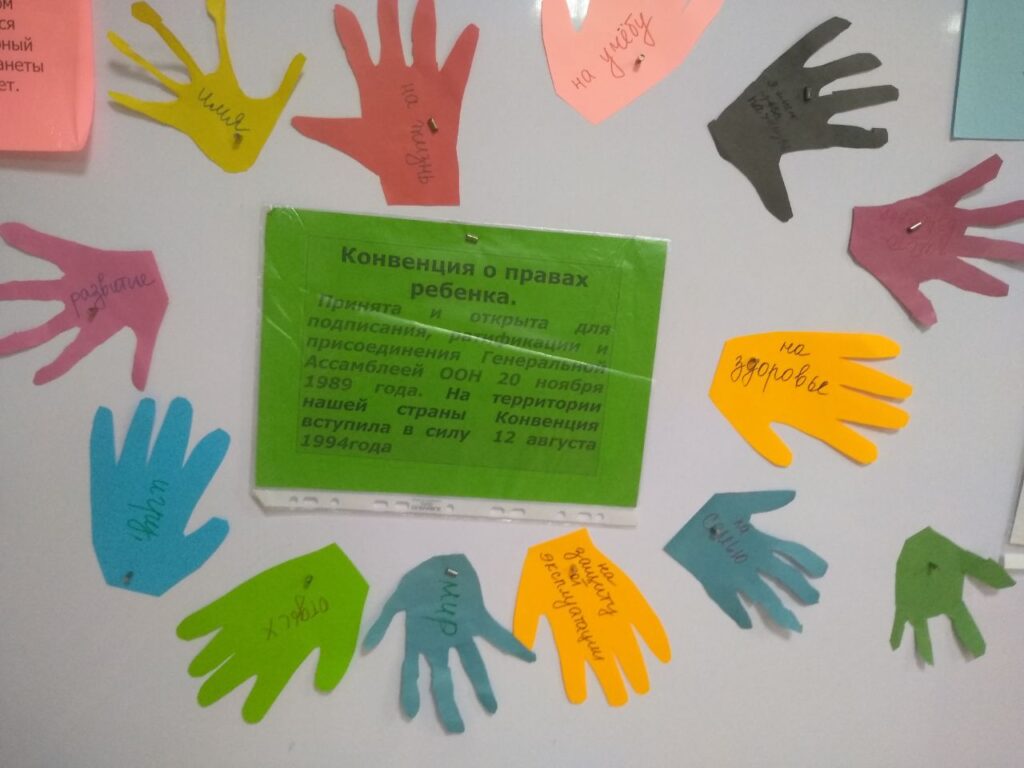 ом
ся
ный
анеты
ет.
имя
на жизнь
на учёбу
развитие
Конвенция о правах
ребенка.
Принята и открыта для
подписания, ратификации и
присоединения Генеральной
Ассамблеей ООН 20 ноября
1989 года. На территории
нашей страны Конвенция
вступила в силу 12 августа
1994года
на
здоровье
игру
на
семью
отдых
мир
на
защиту
от
эксплуатации